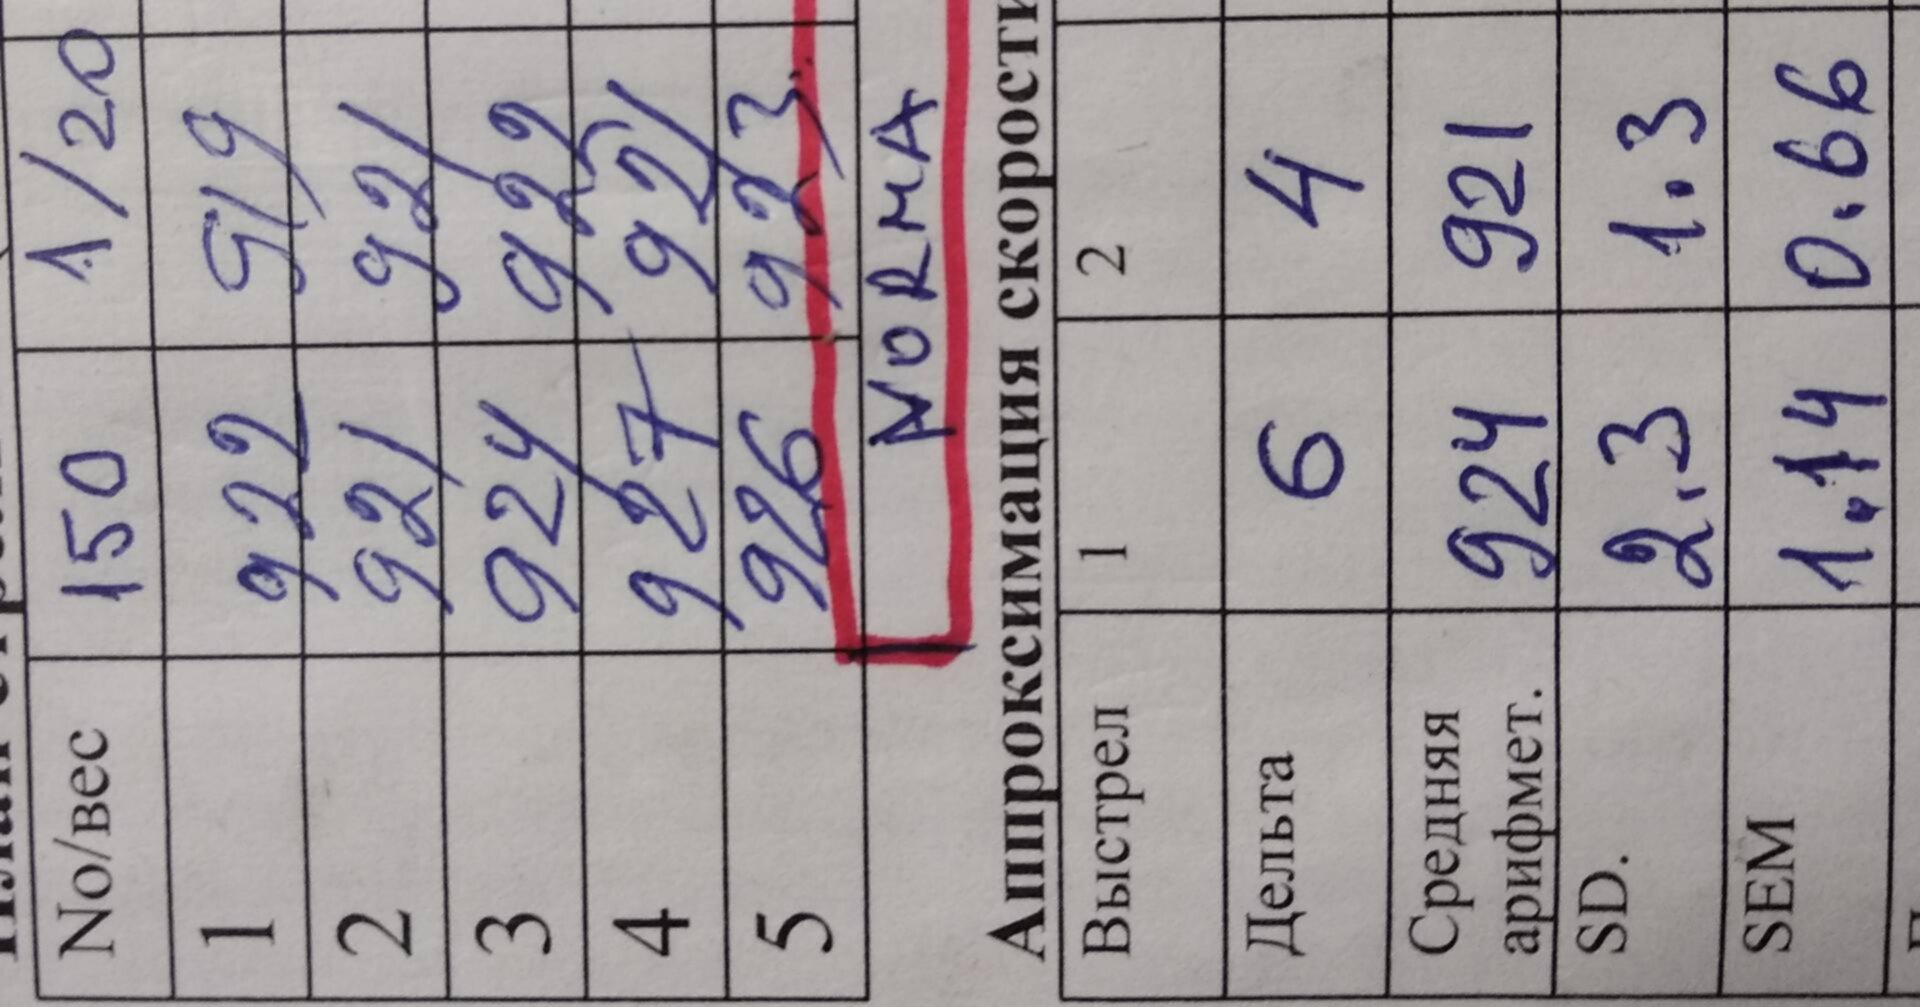 No/вес 150 1/20
1 922 919
2 921 921
3 924 922
4 927 921
5 926 923
NORMA
Аппроксимация скорости
Выстрел 1 2
Дельта 6 4
Средняя арифмет. 924 921
SD. 2.3 1.3
SEM 1.14 0.66